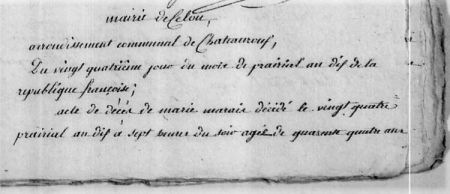 mairie de Celon,
arrondissement communal de Chateauroux,
Du vingt quatrième jour du mois de prairial an dix de la
republique françoise;
acte de décès de marie marais décédé le vingt quatre
prairial an dix a sept heures du soir agée de quarente quatre ans